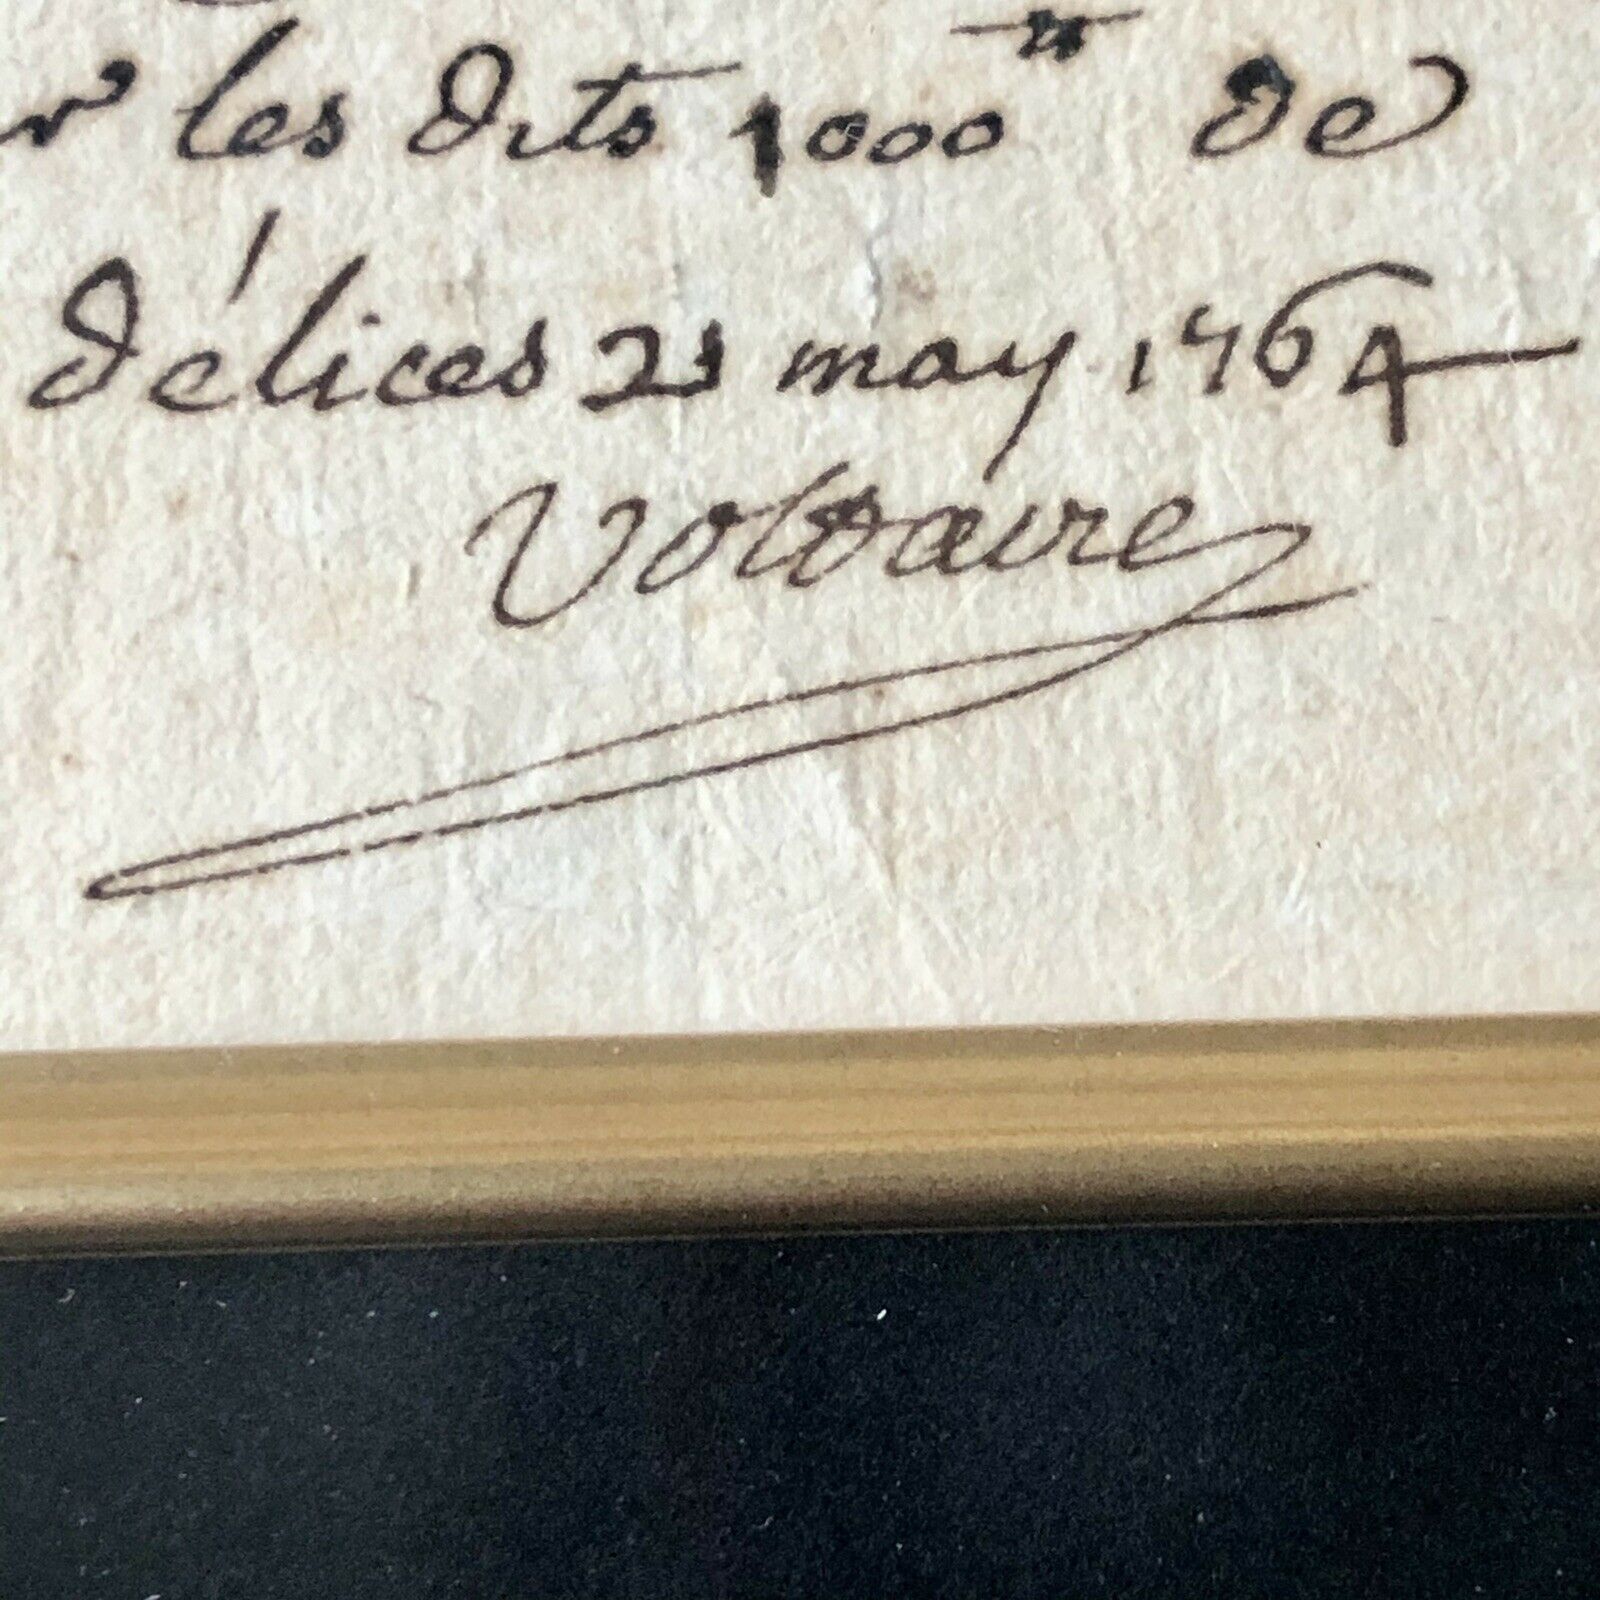 les dits 1000 de
délices 21 may 1764
Voltaire